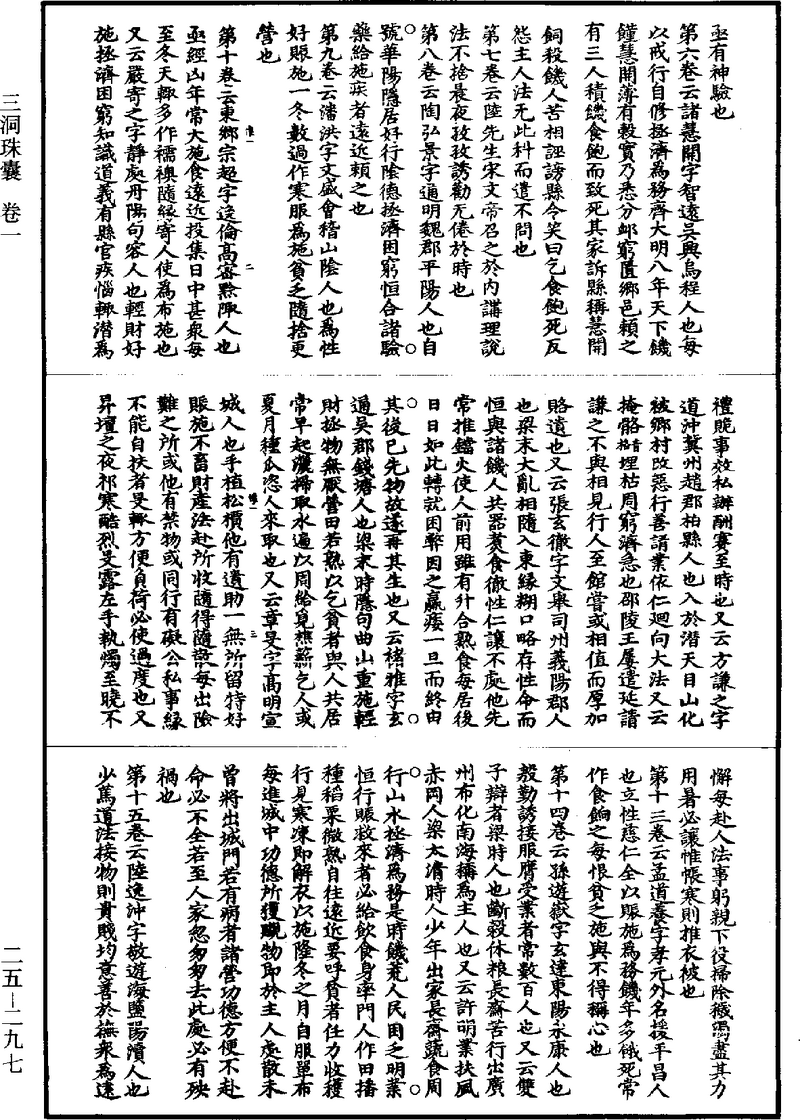 三洞珠囊　卷一
二五—二九七
亟有神驗也
第六卷云諸慧開字智遠吳興烏程人也每
以戒行自修拯濟為務齊大明八年天下饑
饉慧開薄有穀實乃悉分卹窮匱鄉邑賴之
有三人積饑食飽而致死其家訴縣稱慧開
飼殺饑人苦相誣謗縣令笑曰乞食飽死反
怨主人法无此科而遣不問也
第七卷云陸先生宋文帝召之於內講理說
法不捨晨夜孜孜誘勸无倦於時也
第八卷云陶弘景字通明魏郡平陽人也自
號華陽隱居好行陰德拯濟困窮恒合諸驗
藥給施疾者遠近賴之也
第九卷云潘洪字文盛會稽山陰人也為性
好賑施一冬數過作寒服為施貧乏隨捨更
營也
第十卷云東鄉宗超字逸倫高密黔陬人也
亟經凶年常大施食遠近投集日中甚衆每
至冬天輒多作襦襖隨緣寄人使為布施也
又云嚴寄之字靜處丹陽句容人也輕財好
施拯濟困窮知識道義有縣官疾惱輒潛為
禮貺事效私辦酬賽至時也又云方謙之字
道沖冀州趙郡柏縣人也入於潛天目山化
被鄉村改惡行善請業依仁迴向大法又云
掩骼埋枯周窮濟急也邵陵王屢遣延請
謙之不與相見行人至館嘗或相值而厚加
賂遺也又云張玄徹字文舉司州義陽郡人
也梁末大亂相隨入東緣糊口略存性命而
恒與諸饑人共器煑食徹性仁讓不處他先
常推鐺火使人前用雖有升合熟食每居後
日日如此轉就困弊因之羸瘻一旦而終由
其後已先物故遂再其生也又云褚雅字玄
通吳郡錢塘人也梁末時隱句曲山重施輕
財拯物無厭營田若熟以乞貧者與人共居
常早起灑掃取水遍以周給覓樵蘇乞人或
夏月種瓜恣人來取也又云章旻字高明宣
城人也手植松檟他有遺助一無所留特好
賑施不畜財產法赴所收隨得隨散每出險
難之所或他有禁物或同行有礙公私事緣
不能自扶者旻輒方便負荷必使過度也又
昇壇之夜祁寒酷烈旻露左手執燭至曉不
懈每赴人法事躬親下役掃除穢濁盡其力
用暑必讓惟悵寒則推衣被也
第十三卷云孟道養字孝元外名援平昌人
也立性慈仁全以賑施為務饑年多餓死常
作食餉之每恨貧乏施與不得稱心也
第十四卷云孫遊嶽字玄達東陽永康人也
毅勤誘接服膺受業者常數百人也又云雙
子辯者梁時人也斷穀休粮長齋苦行出廣
州布化南海稱為主人也又云許明業扶風
赤岡人梁太清時人少年出家長齋蔬食周
行山水拯濟為務是時饑荒人民困乏明業
恒行賑救來者必給飲食身率門人作田播
種稻粟微熟自往遠近要呼貧者任力收穫
行見寒凍即解衣以施隆冬之月自服單布
每進城中功德所獲嚫物即於主人處散未
曾將出城門若有病者諸營功德方便不赴
命必不全若至人家忽匆匆去此處必有殃
禍也
第十五卷云陸逸沖字敬遊海鹽陽瀆人也
少篤道法接物則貴賤均意善於撫衆為遠